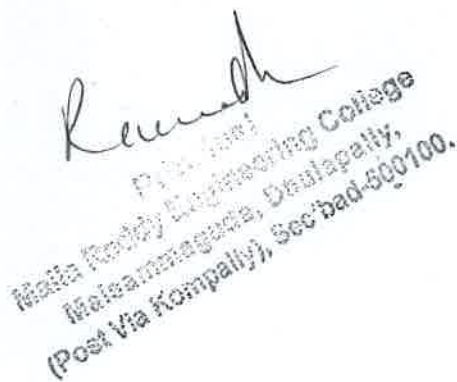 Principal
Malla Reddy Engineering College
Maisammaguda, Dhulapally,
(Post Via Kompally), Sec'bad-500100.